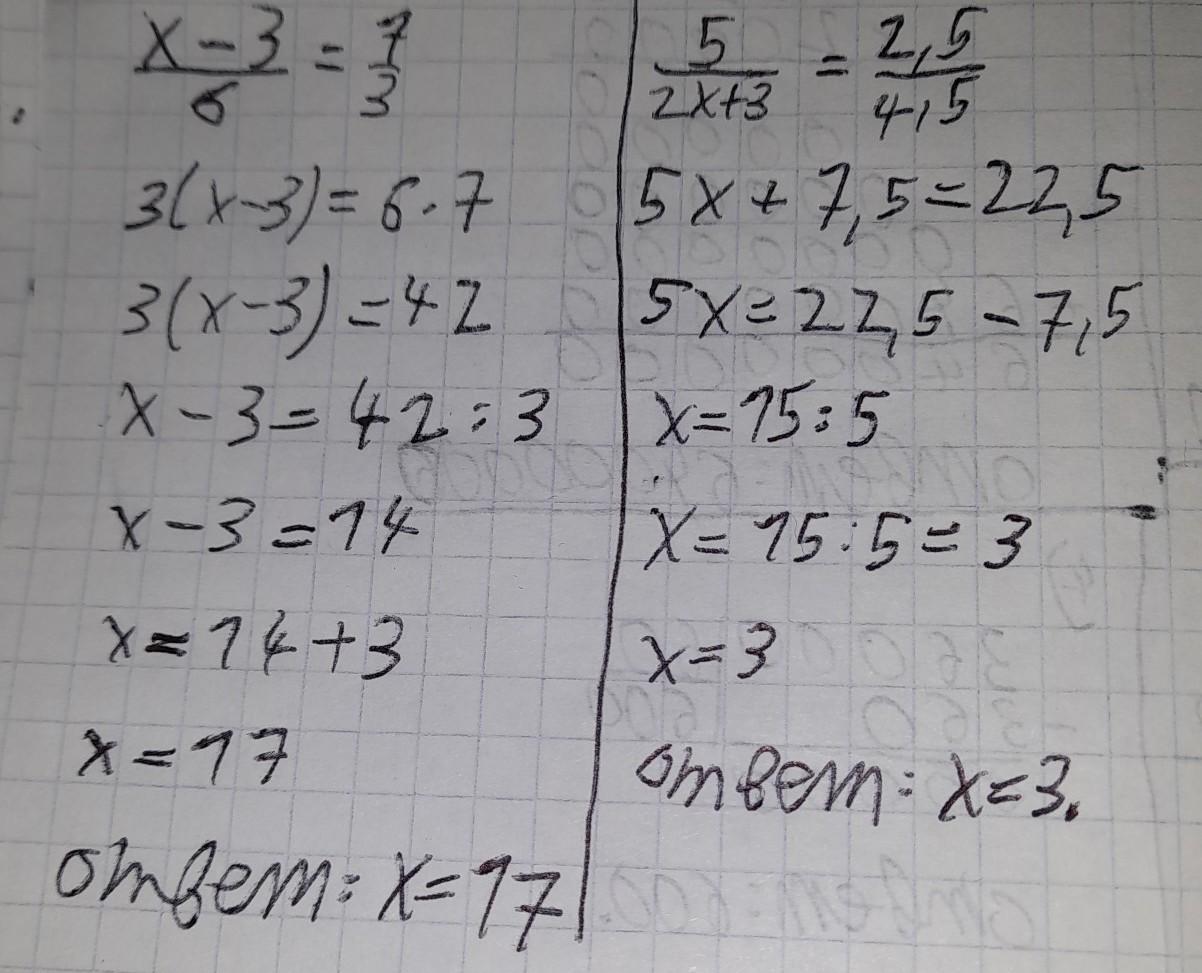 x-3/6 = 7/3
3(x-3) = 6·7
3(x-3) = 42
x-3 = 42:3
x-3 = 14
x = 14+3
x = 17
ответ: x=17
5/2x+3 = 2,5/4,5
5x + 7,5 = 22,5
5x = 22,5 - 7,5
x = 15:5
x = 15:5 = 3
x = 3
ответ: x=3.